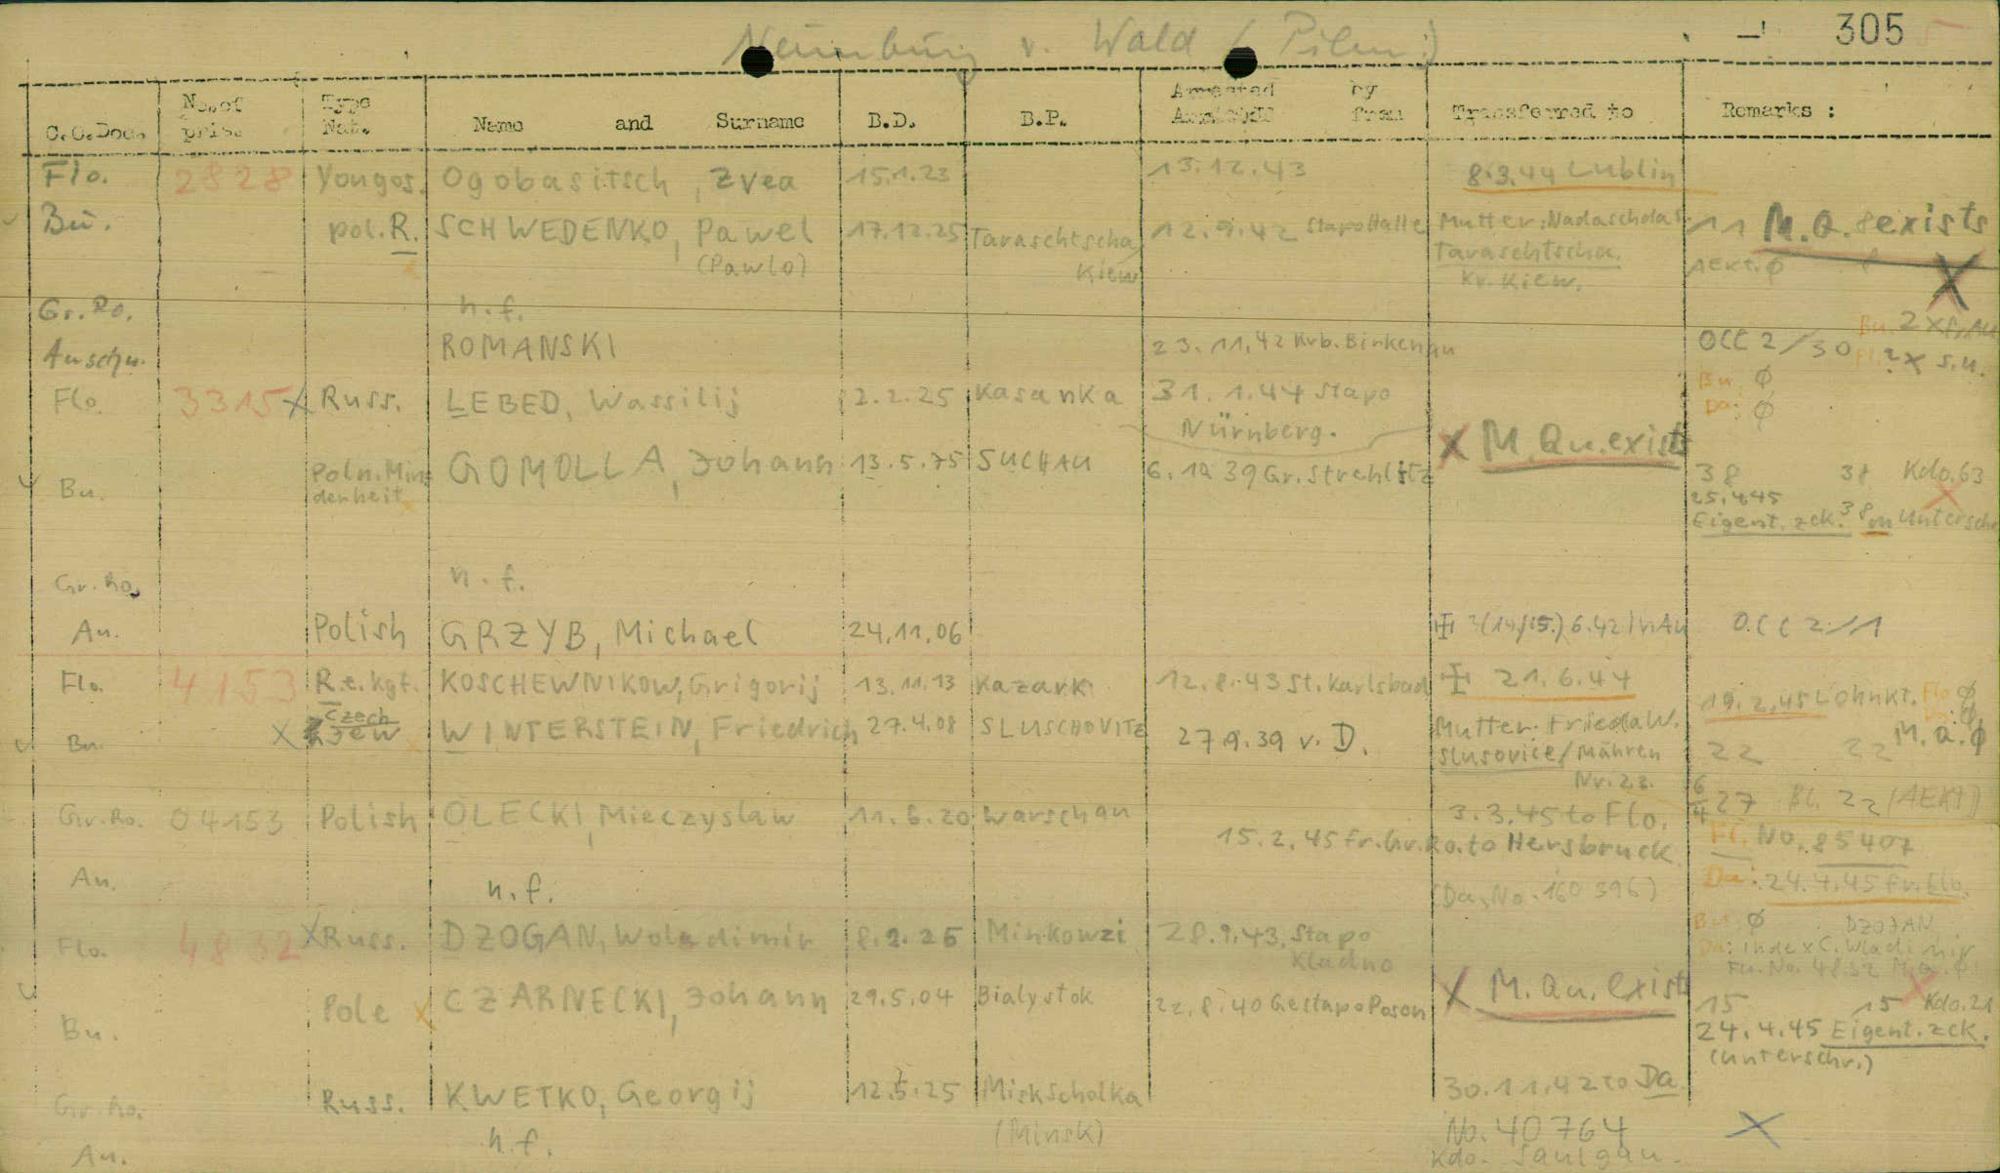 Neunburg v. Wald (Pilm:)
305
C.C.Doc. No. of priso. Type Nat. Name and Surname B.D. B.P. Arrested by from Transferred to Remarks :
Flo. 2828 Yougos. Ogobasitsch, Zvea 15.1.23 13.12.43 8.3.44 Lublin
Bu. pol. R. SCHWEDENKO, Pawel 17.12.25 Taraschtscha 12.9.42 Stapo Halle Mutter: 11 M.Q. exists
(Pawlo) Kiew Taraschtscha. AEKt. Ø
Kr. Kiew. X
Gr. Ro. n.f.
Auschw. ROMANSKI 23.11.42 Krb. Birkenau OCC 2/30
Bu. 2x
2x s.u.
Flo. 3315 X Russ. LEBED, Wassilij 2.2.25 Kasanka 31.1.44 Stapo Bu. Ø
Nürnberg. Da: Ø
Bu. Poln. Min= GOMOLLA, Johann 13.5.75 SUCHAU 6.10.39 Gr. Strehlitz X M.Qu. exists 38 38 Kdo. 63
denheit 25.4.45
Eigent. zck. 38 Unterschr
Gr. Ro. n.f.
Au. Polish GRZYB, Michael 24.11.06 6.42 in Au OCC 2/1
Flo. 4153 R.e.kgf. KOSCHEWNIKOW, Grigorij 13.11.13 Kazarki 12.8.43 St. Karlsbad 21.6.44 19.2.45 Lohnkt. Flo Ø
Bu. X Czech WINTERSTEIN, Friedrich 27.4.08 SLUSCHOVITZ 27.9.39 v. D. Mutter: Frieda W. 22 22 M.Q. Ø
Jew Slusovice/Mähren
Nr. 22.
27 Bl. 22 (AEKt)
Gr. Ro. 04153 Polish OLECKI, Mieczyslaw 11.6.20 Warschau 3.3.45 to Flo. Fl. No. 85407
15.2.45 fr. Gr. Ro. to Hersbruck
Au. n.f. (Da. No. 160396) Da: 24.4.45 fr. Flo.
Flo. 4832 X Russ. DZOGAN, Woladimir 8.2.26 Minkowzi 28.9.43, Stapo Bu. Ø DZOJAN,
Kladno Da: Index C. Wladimir
Flo. No. 4832 M.Q. Ø
Bu. Pole X CZARNECKI, Johann 29.5.04 Bialystok 22.8.40 Gestapo Posen X M.Qu. exists 15 15 Kdo. 21
24.4.45 Eigent. zck.
(Unterschr.)
Gr. Ro. Russ. KWETKO, Georgij 12.5.25 Mirkscholka 30.11.42 to Da.
n.f. (Minsk) No. 40764 X
Au. Kdo. Saulgau.